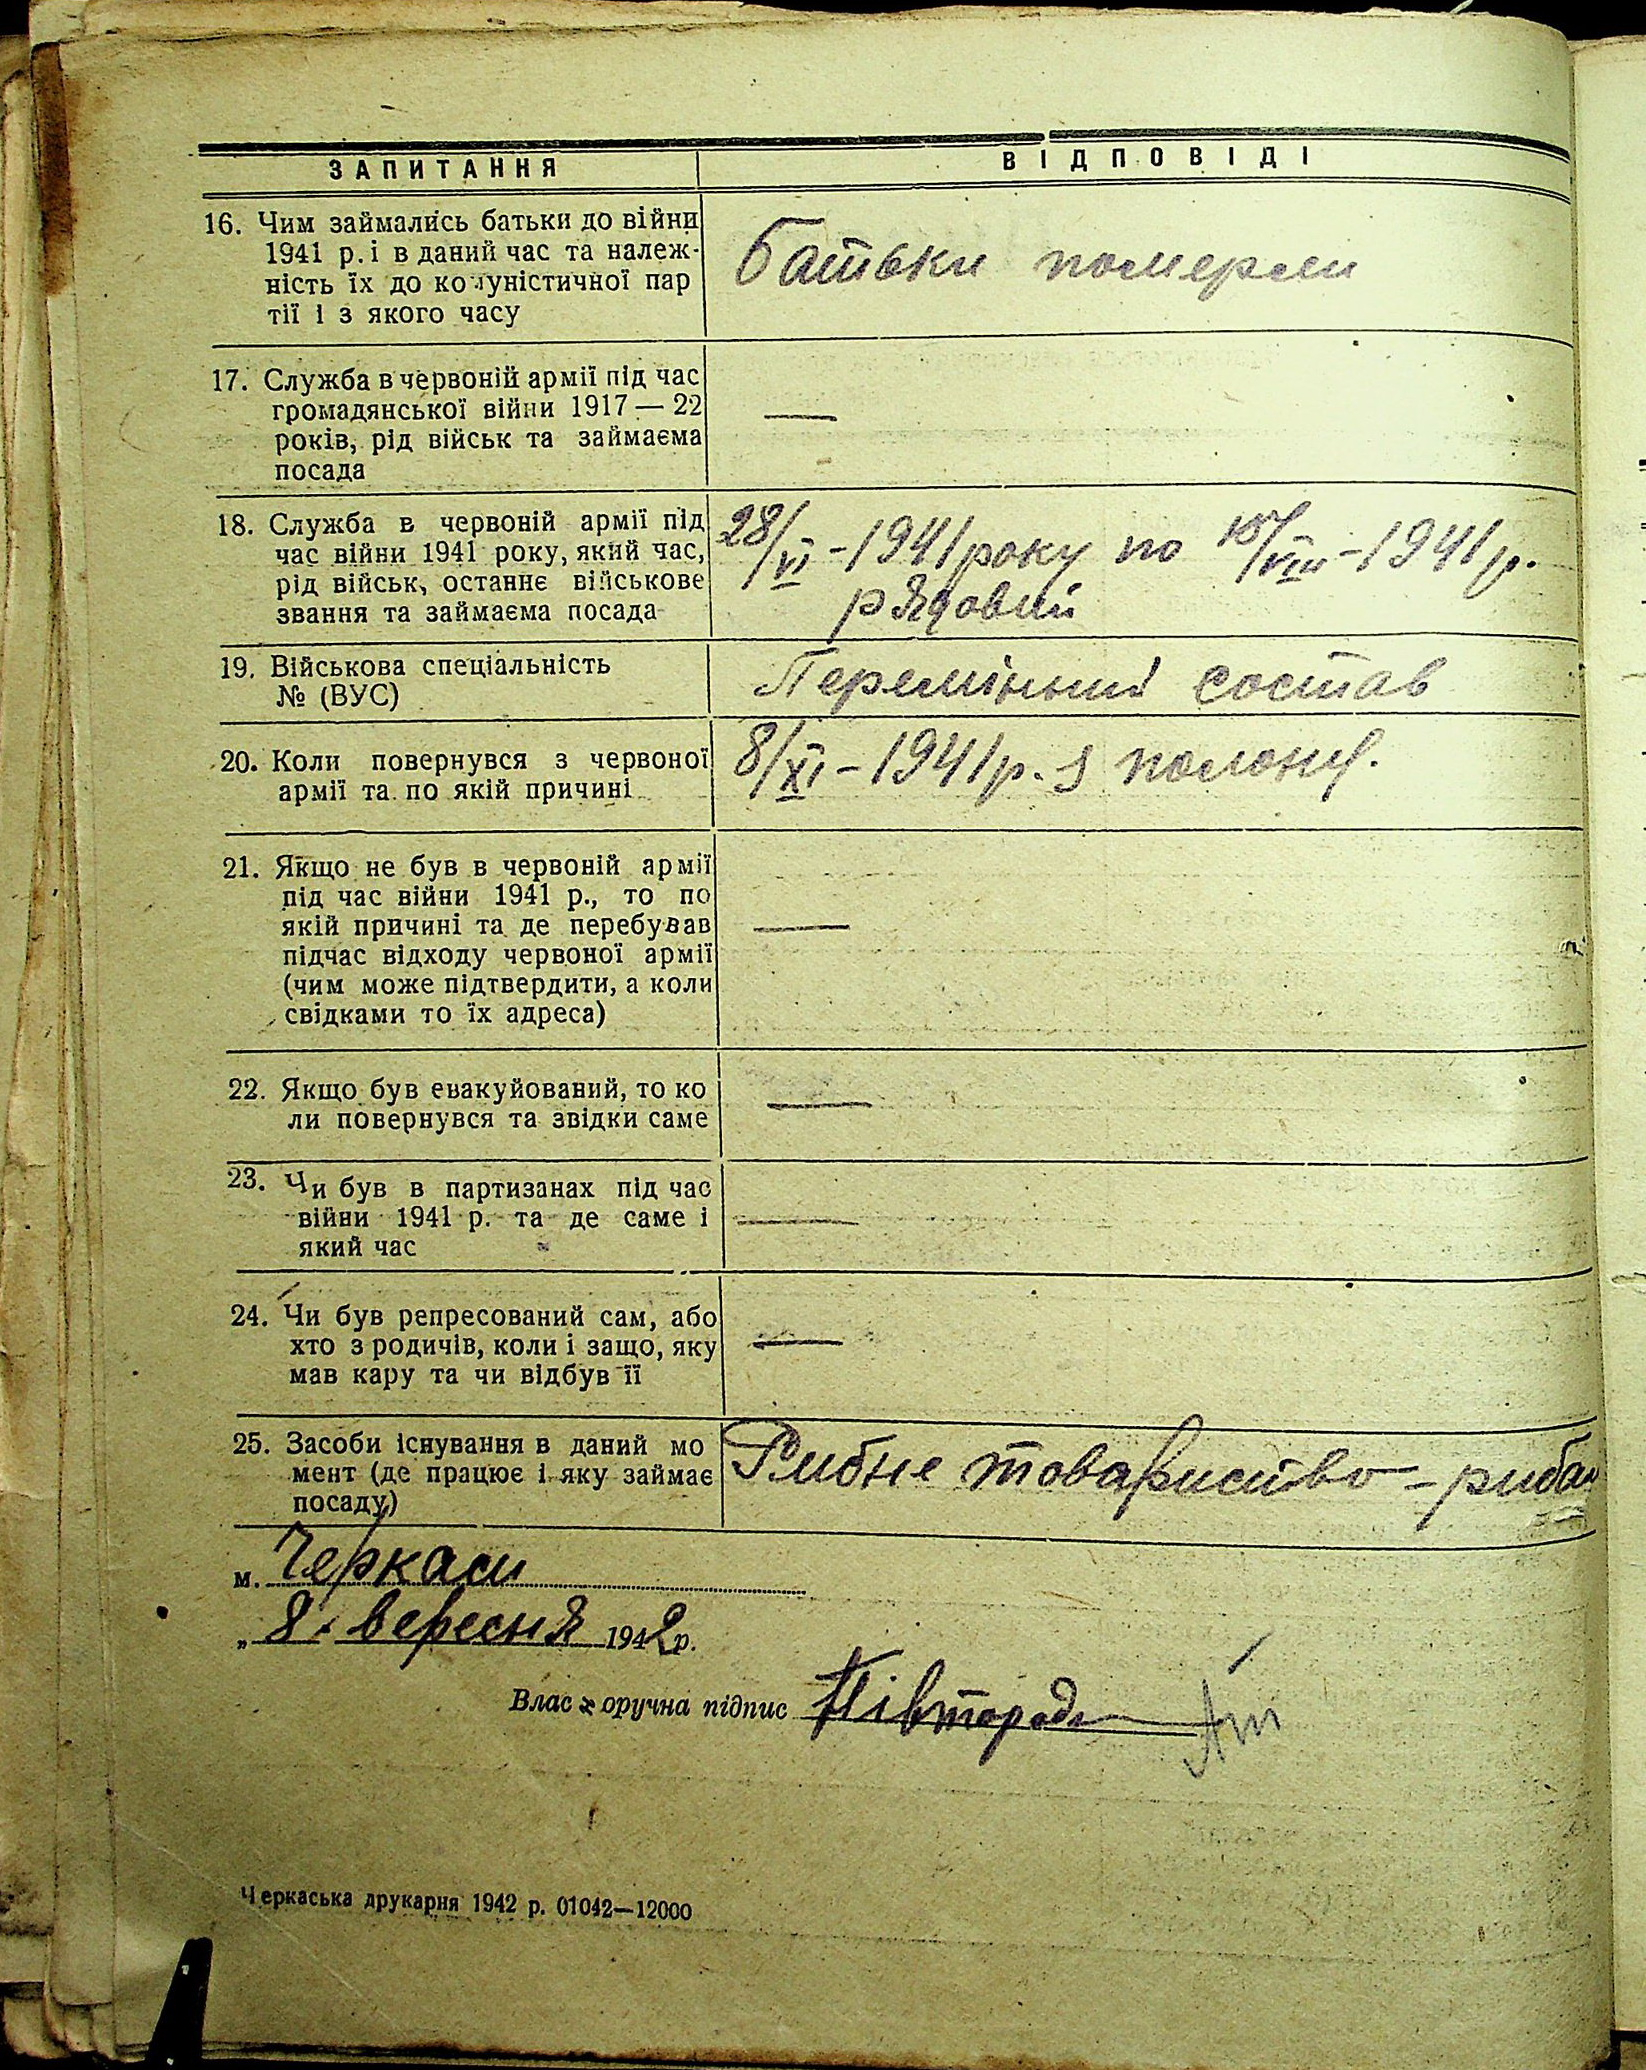 ЗАПИТАННЯ
ВІДПОВІДІ
16. Чим займались батьки до війни
1941 р. і в даний час та належ-
ність їх до ко уністичної пар
тії і з якого часу
Батьки померли
17. Служба в червоній армії під час
громадянської війни 1917 — 22
років, рід військ та займаєма
посада
—
18. Служба в червоній армії під
час війни 1941 року, який час,
рід військ, останнє військове
звання та займаєма посада
28/VI - 1941 року по /VIII - 1941 р.
рядовий
19. Військова спеціальність
№ (ВУС)
Перемінний состав
20. Коли повернувся з червоної
армії та по якій причині
8/XI - 1941 р. з полону.
21. Якщо не був в червоній армії
під час війни 1941 р., то по
якій причині та де перебував
підчас відходу червоної армії
(чим може підтвердити, а коли
свідками то їх адреса)
—
22. Якщо був евакуйований, то ко
ли повернувся та звідки саме
—
23. Чи був в партизанах під час
війни 1941 р. та де саме і
який час
—
24. Чи був репресований сам, або
хто з родичів, коли і защо, яку
мав кару та чи відбув її
—
25. Засоби існування в даний мо
мент (де працює і яку займає
посаду)
Рибне товариство - рибак
м. Черкаси
„ 8. вересня 1942 р.
Власоручна підпис
Черкаська друкарня 1942 р. 01042—12000